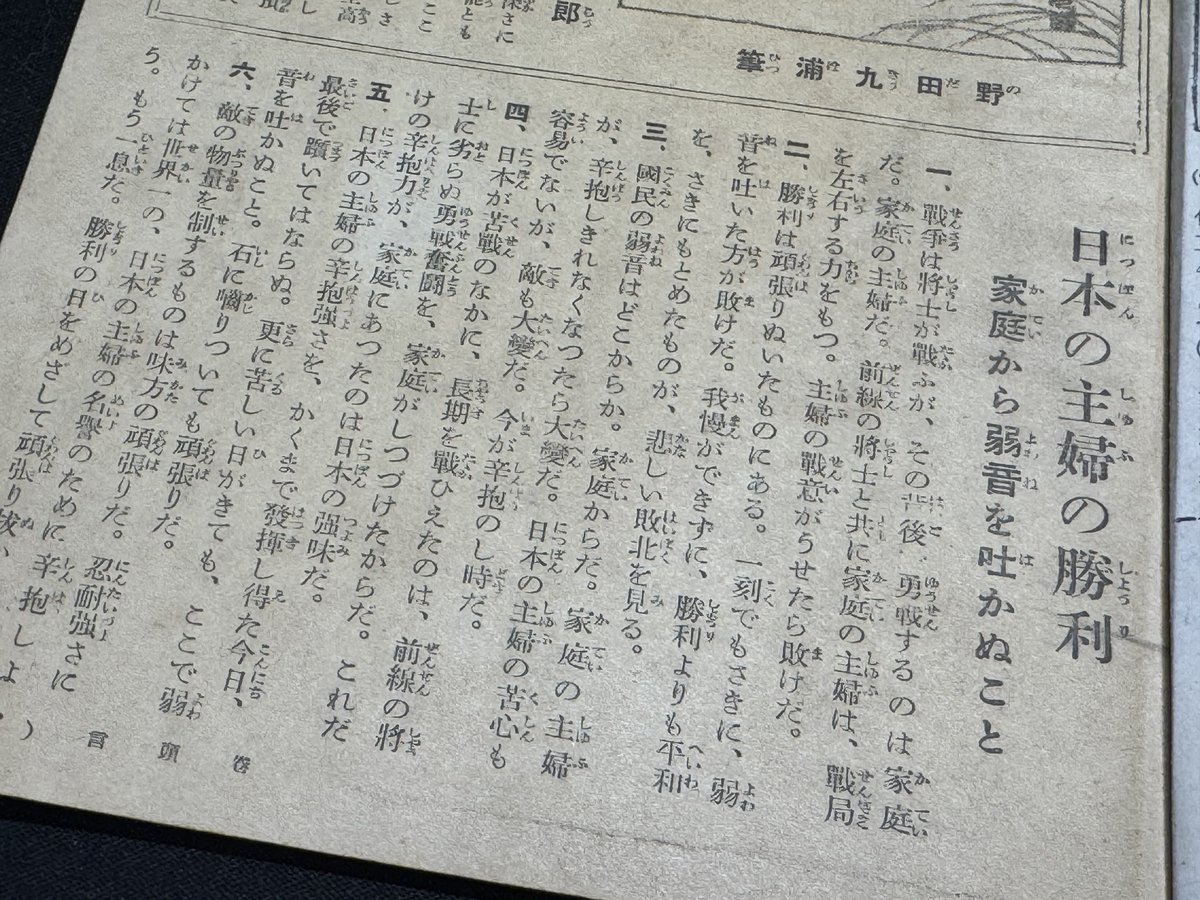 野田九浦筆
郎
日本の主婦の勝利
家庭から弱音を吐かぬこと
一、戰爭は將士が戰ふが、その背後、勇戰するのは家庭
だ。家庭の主婦だ。前線の將士と共に家庭の主婦は、戰局
を左右する力をもつ。主婦の戰意がうせたら敗けだ。
二、勝利は頑張りぬいたものにある。一刻でもさきに、弱
音を吐いた方が敗けだ。我慢ができずに、勝利よりも平和
を、さきにもとめたものが、悲しい敗北を見る。
三、國民の弱音はどこからか。家庭からだ。家庭の主婦
が、辛抱しきれなくなつたら大變だ。日本の主婦の苦心も
容易でないが、敵も大變だ。今が辛抱のし時だ。
四、日本が苦戰のなかに、長期を戰ひえたのは、前線の將
士に劣らぬ勇戰奮鬪を、家庭がしつづけたからだ。これだ
けの辛抱力が、家庭にあつたのは日本の强味だ。
五、日本の主婦の辛抱强さを、かくまで發揮し得た今日、
最後で躓いてはならぬ。更に苦しい日がきても、ここで弱
音を吐かぬこと。石に嚙りついても頑張りだ。
六、敵の物量を制するものは味方の頑張りだ。忍耐强さに
かけては世界一の、日本の主婦の名譽のために辛抱しよ
う。もう一息だ。勝利の日をめざして頑張り拔
卷頭言